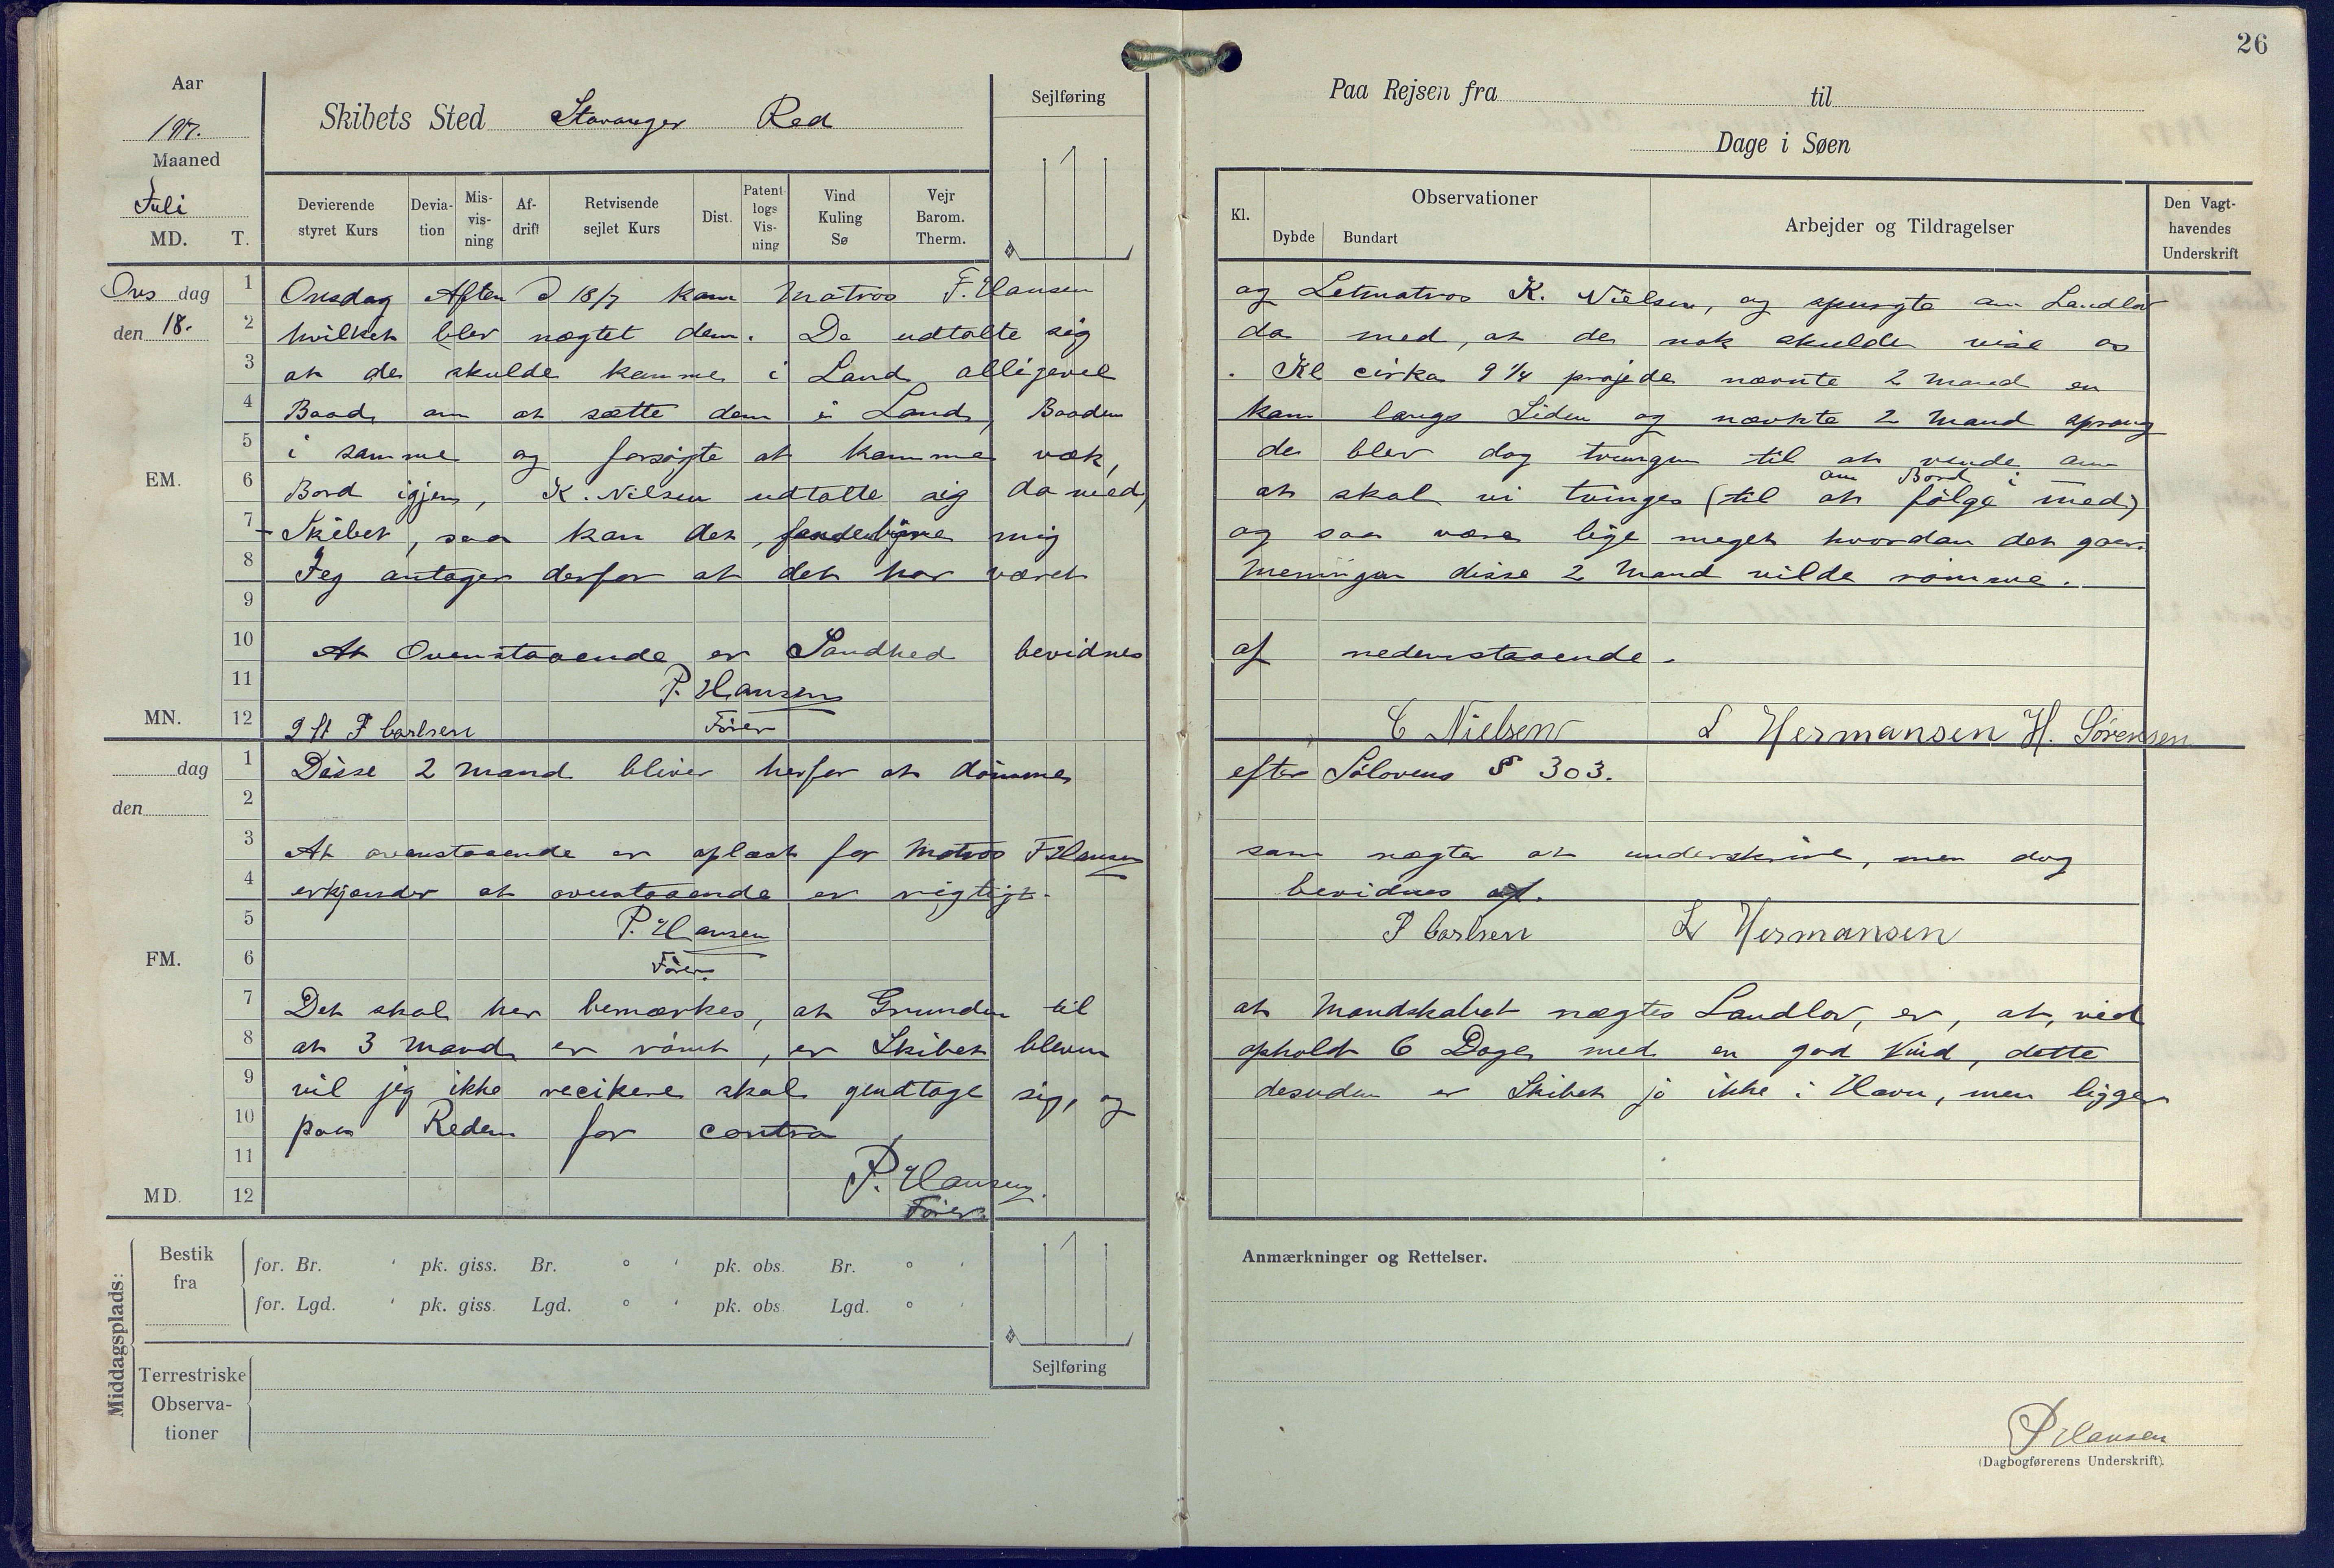 26
Aar
1917.
Maaned
Juli
MD. T.
Skibets Sted Stavanger Red
Sejlføring
Paa Rejsen fra til
Dage i Søen
Devierende styret Kurs
Deviation
Misvisning
Afdrift
Retvisende sejlet Kurs
Dist.
Patent logs Visning
Vind Kuling Sø
Vejr Barom. Therm.
Kl.
Observationer
Dybde Bundart
Arbejder og Tildragelser
Den Vagthavendes Underskrift
Ons dag 1 Onsdag Aften d 18/7 kom Matros F. Hansen og Letmatros K. Nielsen, og spurgte om Landlov
den 18. 2 hvilket blev nægtet dem. De udtalte sig da med, at de nok skulde vise os
3 at de skulde komme i Land alligevel . Kl cirka 9 1/4 prajede nævnte 2 Mand en
4 Baad, om at sætte dem i Land, Baaden kom langs Siden og nævnte 2 Mand sprang
5 i samme og forsøgte at komme væk, de blev dog tvungen til at vende om
om Bord i
EM. 6 Bord igjen, K. Nilsen udtalte sig da med, at skal vi tvinges (til at følge med)
7 Skibet, saa kan det mig og saa være lige meget hvordan det gaar.
8 Jeg antager derfor at det har været Meningen disse 2 Mand vilde rømme.
9
10 At Ovenstaaende er Sandhed bevidnes af nedenstaaende.
11 P. Hansen
MN. 12 P Carlsen Fører C Nielsen L Hermansen H. Sørensen
dag 1 Disse 2 Mand bliver herfor at dømme efter Sølovens § 303.
den 2
3 At ovenstaaende er oplæst for Matros F Hansen som nægter at underskrive, men dog
4 erkjender at ovenstaaende er rigtigt. bevidnes af.
5 P. Hansen P Carlsen L Hermansen
FM. 6 Fører.
7 Det skal her bemærkes, at Grunden til at Mandskabet nægtes Landlov, er, at, ved
8 at 3 Mand er rømt, er Skibet bleven opholdt 6 Dage med en god Vind, dette
9 vil jeg ikke recikere skal gendtage sig, og desuden er Skibet jo ikke i Havn, men ligger
10 paa Reden for contra
11 P. Hansen.
MD. 12 Fører
Middagsplads:
Bestik fra
for. Br. ' pk. giss. Br. ° ' pk. obs. Br. ° '
for. Lgd. ' pk. giss. Lgd. ° ' pk. obs. Lgd. ° '
Sejlføring
Terrestriske Observationer
Anmærkninger og Rettelser.
P Hansen
(Dagbogførerens Underskrift).